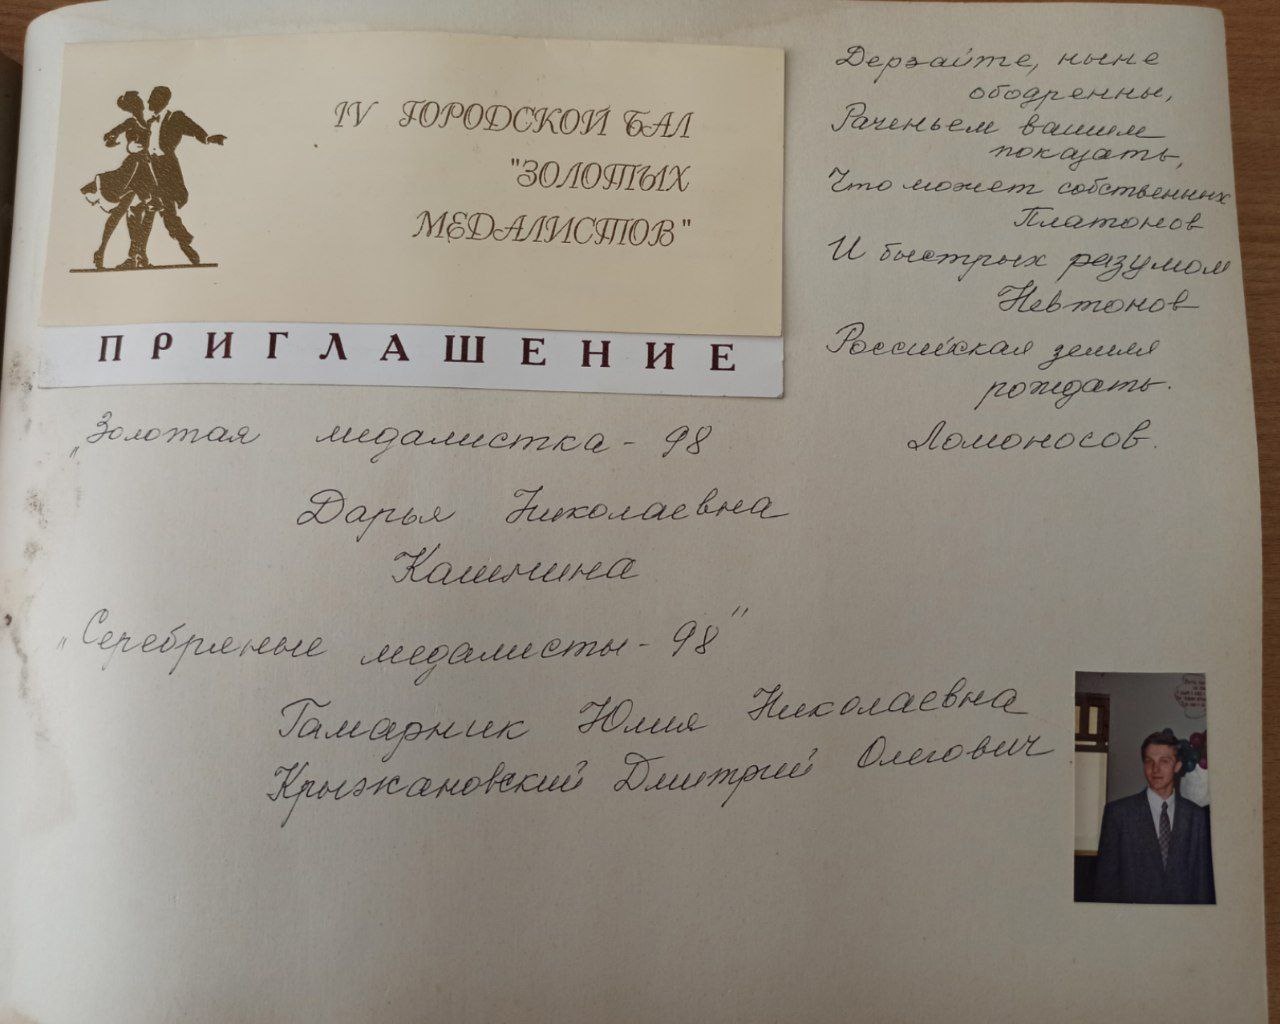 IV ГОРОДСКОЙ БАЛ
"ЗОЛОТЫХ
МЕДАЛИСТОВ"
ПРИГЛАШЕНИЕ
Дерзайте, ныне
ободренны,
Раченьем вашим
показать,
Что может собственных
Платонов
И быстрых разумом
Невтонов
Российская земля
рождать.
Ломоносов.
„Золотая медалистка - 98
Дарья Николаевна
Кашинина
„Серебряные медалисты - 98"
Гамарник Юлия Николаевна
Крыжановский Дмитрий Олегович